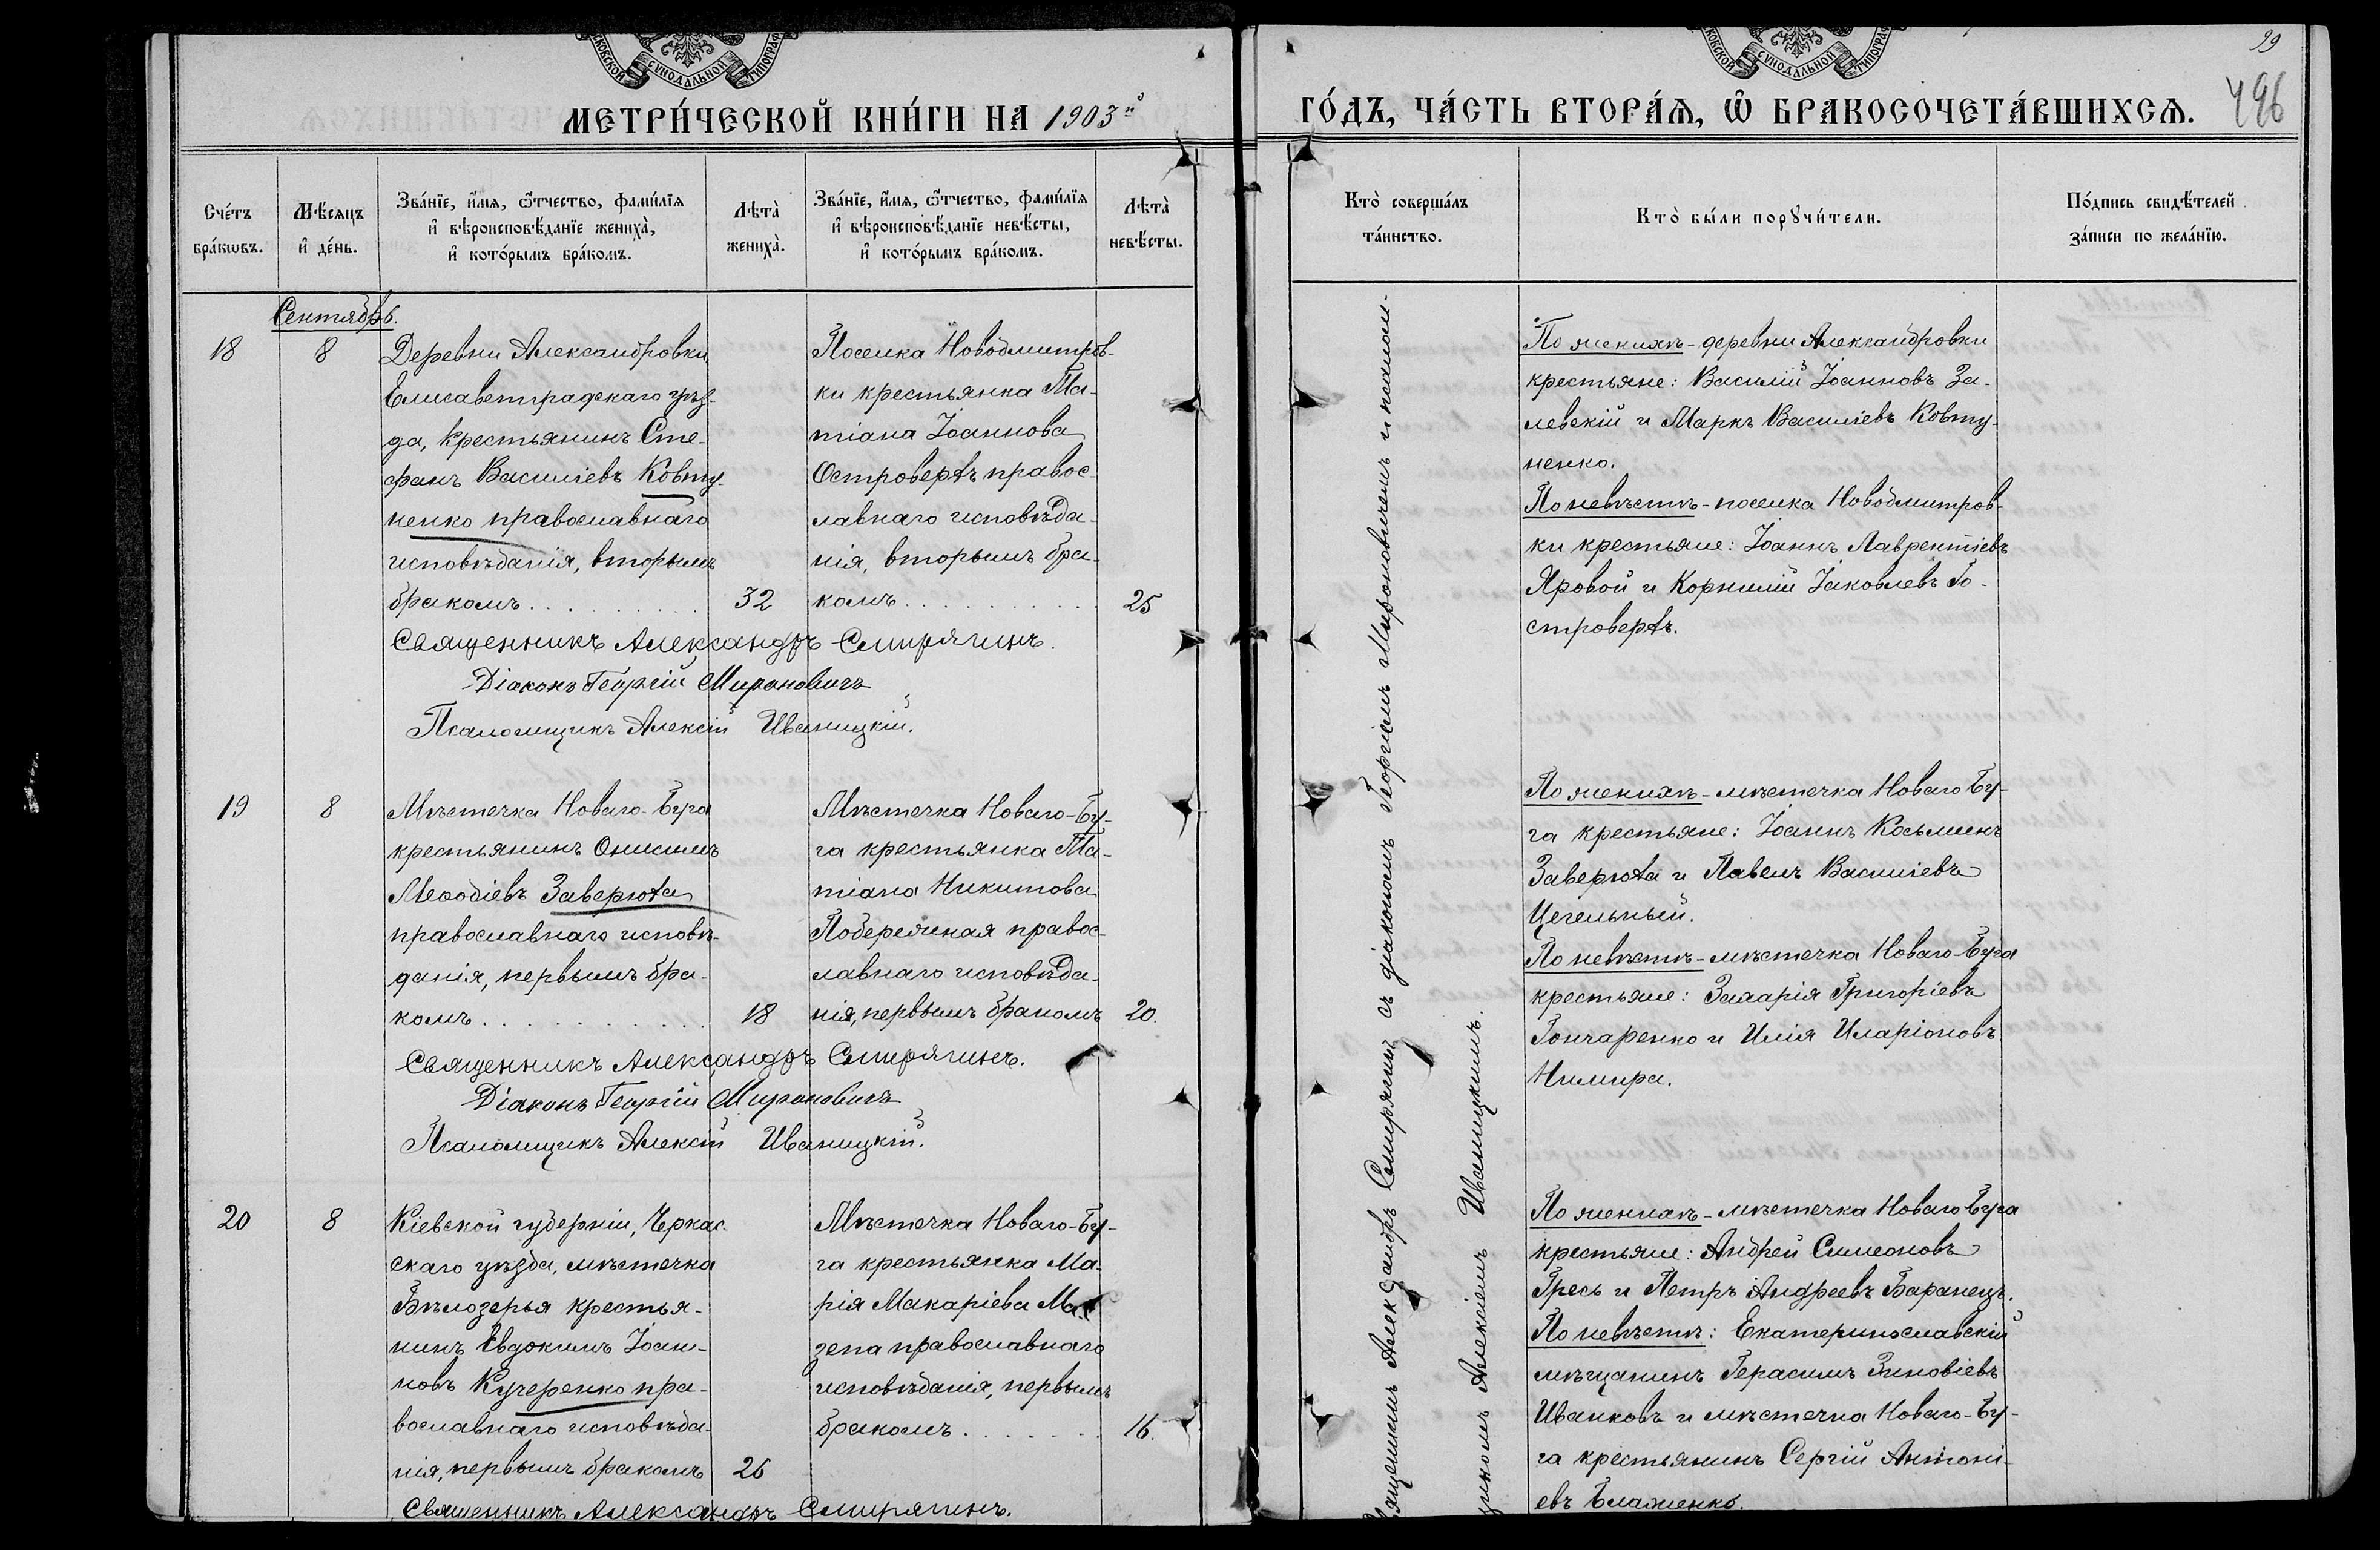 МОСКОВСКОЙ СѴНОДАЛЬНОЙ ТИПОГРАФ
МЕТРИ́ЧЕСКОЙ КНИ́ГИ НА 1903й
Сче́тъ
бра́кѡвъ.
Мѣ́сяцъ
и҆ де́нь.
Зва́нїе, и҆́мѧ, ѻ҆́тчество, фами́лїѧ
и҆ вѣроисповѣ́данїе женихà,
и҆ кото́рымъ бра́комъ.
Лѣтà
женихà.
Зва́нїе, и҆́мѧ, ѻ҆́тчество, фами́лїѧ
и҆ вѣроисповѣ́данїе невѣ́сты,
и҆ кото́рымъ бра́комъ.
Лѣтà
невѣ́сты.
Сентябрь.
18
8
Деревни Александровки
Елисаветградскаго уѣз-
да, крестьянинъ Сте-
фанъ Василіевъ Ковту-
ненко православнаго
исповѣданія, вторымъ
бракомъ . . . . . . . . .
32
Поселка Новодмитров-
ки крестьянка Та-
тіана Іоаннова
Островерхъ правос-
лавнаго исповѣда-
нія, вторымъ бра-
комъ . . . . . . . . . .
25
Священникъ Александръ Смирягинъ.
Діаконъ Георгій Мироновичъ
Псаломщикъ Алексій Иваницкій.
19
8
Мѣстечка Новаго-Буга
крестьянинъ Онисимъ
Меѳодіевъ Заверюха
православнаго исповѣ-
данія, первымъ бра-
комъ . . . . . . . . . . .
18
Мѣстечка Новаго-Бу-
га крестьянка Та-
тіана Никитова
Побережная правос-
лавнаго исповѣда-
нія, первымъ бракомъ
20.
Священникъ Александръ Смирягинъ.
Діаконъ Георгій Мироновичъ
Псаломщикъ Алексій Иваницкій.
20
8
Кіевской губерніи, Черкас-
скаго уѣзда, мѣстечка
Бѣлозерья крестья-
нинъ Евдокимъ Іоан-
новъ Кучеренко пра-
вославнаго исповѣда-
нія, первымъ бракомъ
26
Мѣстечка Новаго-Бу-
га крестьянка Ма-
рія Макаріева Ма
зепа православнаго
исповѣданія, первымъ
бракомъ . . . . . . . .
16.
Священникъ Александръ Смирягинъ.
МОСКОВСКОЙ СѴНОДАЛЬНОЙ ТИПОГРАФ
99
496
ГО́ДЪ, ЧА́СТЬ ВТОРА́Ѧ, Ѽ БРАКОСОЧЕТА́ВШИХСѦ.
Кто̀ соверша́лъ
та́инство.
Кто̀ бы́ли порꙋчи́тели.
По́дпись свидѣ́телей
за́писи по жела́нїю.
Священникомъ Александръ Смирягинъ съ діакономъ Георгіемъ Мироновичемъ и псалом-
щикомъ Алексіемъ Иваницкимъ.
По женихѣ - деревни Александровки
крестьяне: Василій Іоанновъ За-
левскій и Маркъ Василіевъ Ковту-
ненко.
По невѣстѣ - поселка Новодмитров-
ки крестьяне: Іоаннъ Лаврентіевъ
Яровой и Корнилій Іаковлевъ Го-
строверхъ.
По женихѣ - мѣстечка Новаго Бу-
га крестьяне: Іоаннъ Косьминъ
Заверюха и Павелъ Василіевъ
Цегельный.
По невѣстѣ - мѣстечка Новаго-Буга
крестьяне: Захарія Григоріевъ
Гончаренко и Илія Иларіоновъ
Нимира.
По женихѣ - мѣстечка Новаго Буга
крестьяне: Андрей Симеоновъ
Гресь и Петръ Андреевъ Баранецъ.
По невѣстѣ: Екатеринославскій
мѣщанинъ Герасимъ Зиновіевъ
Иванковъ и мѣстечка Новаго-Бу-
га крестьянинъ Сергій Антоні-
евъ Блаженко.